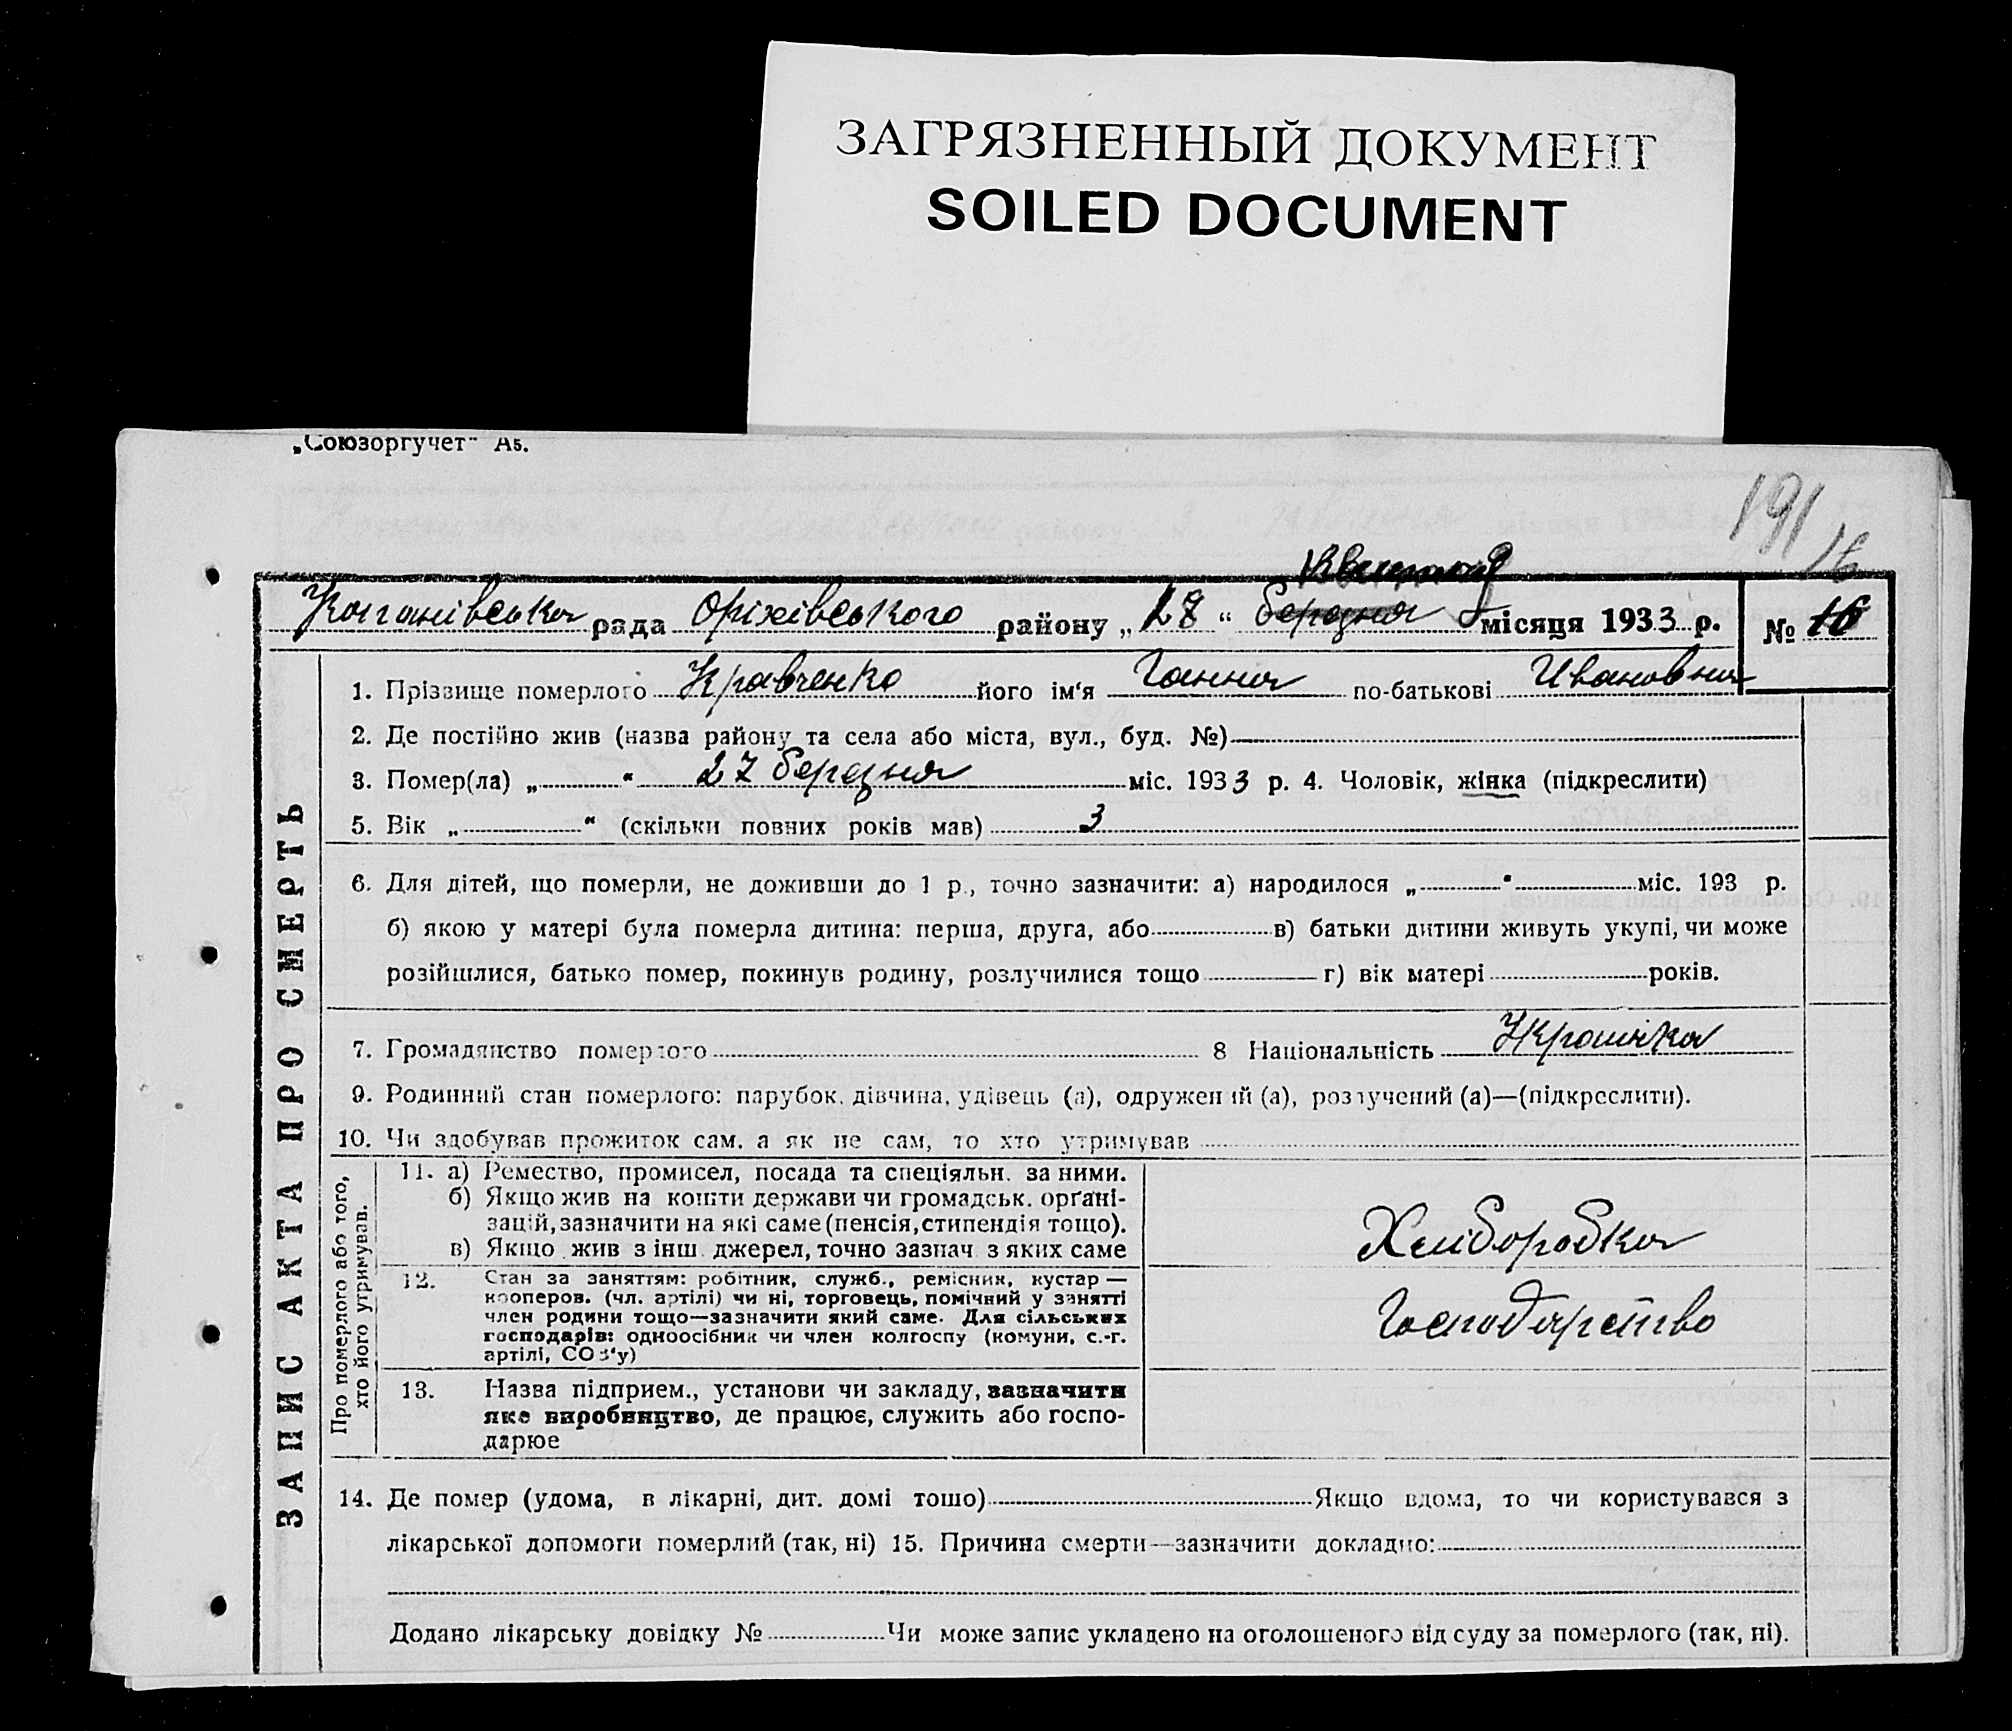 ЗАГРЯЗНЕННЫЙ ДОКУМЕНТ
SOILED DOCUMENT
„Союзоргучет" А5.
191
16
Копанівська рада Оріхівського району „28“ березня місяця 1933 р. № 16
1. Прізвище померлого Кравченко його ім'я Ганна по-батькові Ивановна
2. Де постійно жив (назва району та села або міста, вул., буд. №)
3. Помер(ла) „ “ 27 березня міс. 1933 р. 4. Чоловік, жінка (підкреслити)
5. Вік „ “ (скільки повних років мав) 3
6. Для дітей, що померли, не доживши до 1 р., точно зазначити: а) народилося „ “ міс. 193 р.
б) якою у матері була померла дитина: перша, друга, або в) батьки дитини живуть укупі, чи може
розійшлися, батько помер, покинув родину, розлучилися тощо г) вік матері років.
7. Громадянство померлого 8 Національність Украинка
9. Родинний стан померлого: парубок, дівчина, удівець (а), одружений (а), розлучений (а)—(підкреслити).
10. Чи здобував прожиток сам, а як не сам, то хто утримував
Про померлого або того, хто його утримував.
11. а) Ремество, промисел, посада та спеціяльн. за ними.
б) Якщо жив на кошти держави чи громадськ. орґані-
зацій, зазначити на які саме (пенсія, стипендія тощо).
в) Якщо жив з інш. джерел, точно зазнач. з яких саме
Хлиборобка
12. Стан за заняттям: робітник, служб., ремісник, кустар —
кооперов. (чл. артілі) чи ні, торговець, помічний у занятті
член родини тощо—зазначити який саме. Для сільських
господарів: одноосібник чи член колгоспу (комуни, с.-г.
артілі, СОЗ'у)
Господарство
13. Назва підприєм., установи чи закладу, зазначити
яке виробництво, де працює, служить або госпо-
дарює
14. Де помер (удома, в лікарні, дит. домі тощо) Якщо вдома, то чи користувався з
лікарської допомоги померлий (так, ні) 15. Причина смерти—зазначити докладно:
Додано лікарську довідку № Чи може запис укладено на оголошеного від суду за померлого (так, ні).
ЗАПИС АКТА ПРО СМЕРТЬ